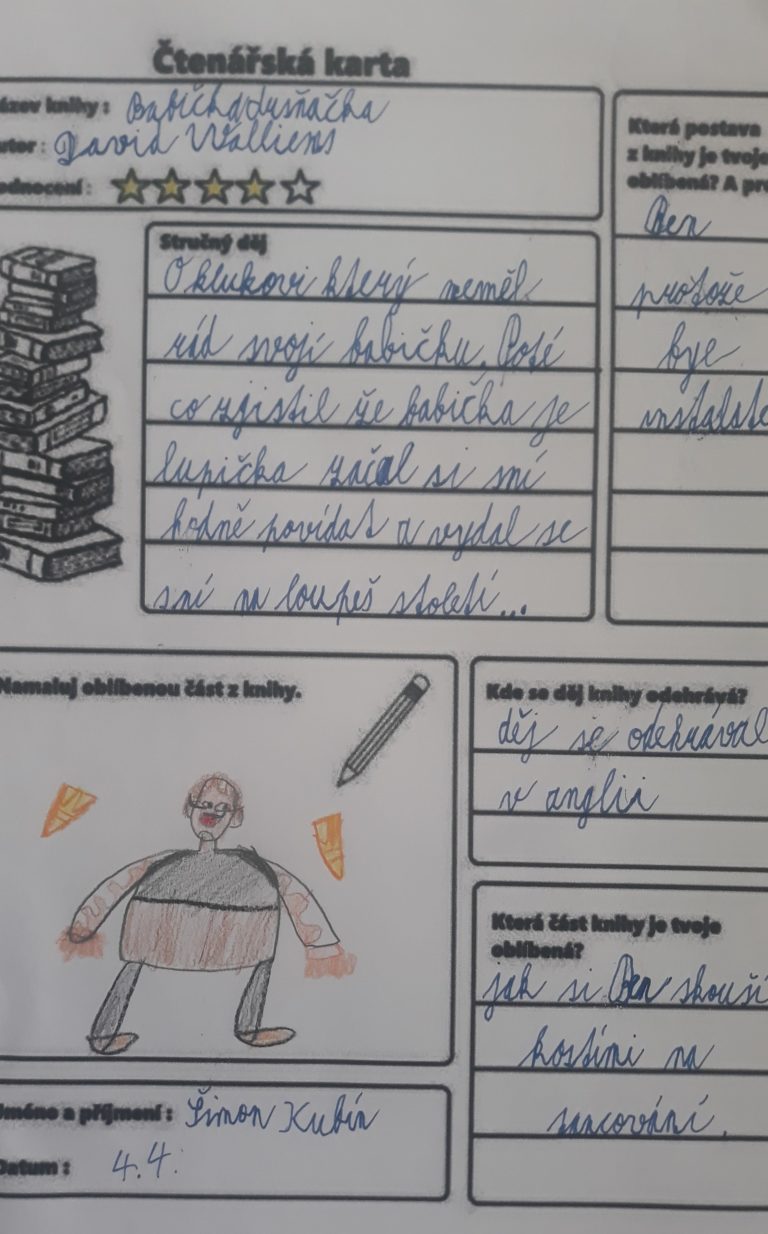 Čtenářská karta
ázev knihy : Babička drsňačka
utor : David Walliems
odnocení :
Která postava
z knihy je tvoje
oblíbená? A pro
Ben
protože
bye
instalate
Stručný děj
O klukovi který neměl
rád svoji babičku. Poté
co zjistil že babička je
lupička začal si sní
hodně povídat a vydal se
sní na loupeš století...
Namaluj oblíbenou část z knihy.
Kde se děj knihy odehrává?
děj se odehrával
v anglii
Která část knihy je tvoje
oblíbená?
jak si Ben skouší
kostími na
tancování.
Jméno a příjmení : Šimon Kubín
Datum : 4.4.